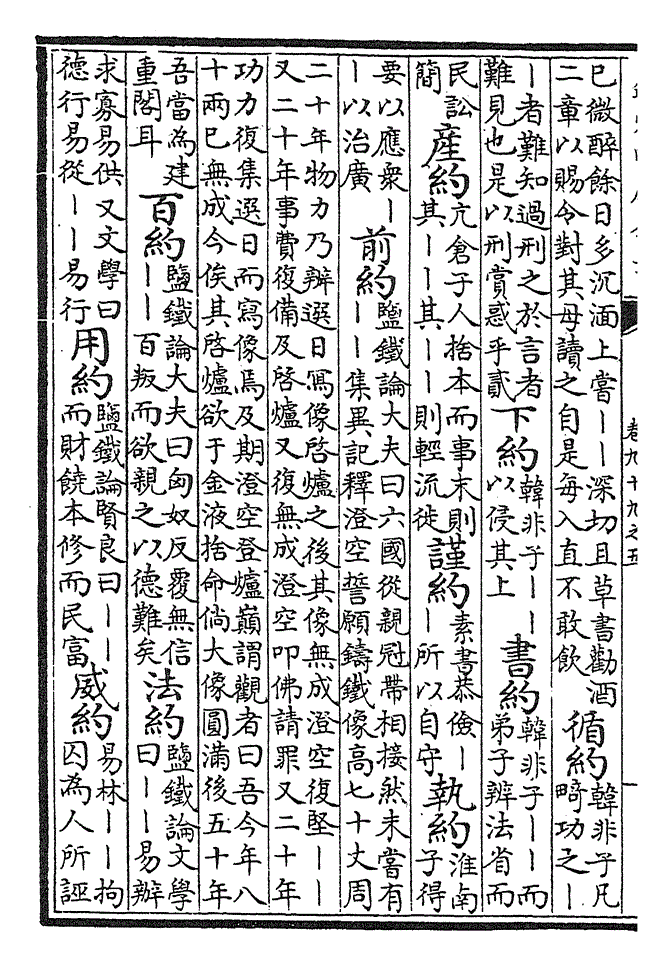 已微醉餘日多沉湎上嘗——深切且草書勸酒
二章以賜令對其母讀之自是每入直不敢飲
循約
韓非子凡
畸功之—
—者難知過刑之於言者
難見也是以刑賞惑乎貳
下約
韓非子——
以侵其上
書約
韓非子——而
弟子辨法省而
民訟
簡
產約
亢倉子人捨本而事末則
其——其——則輕流徙
謹約
素書恭儉—
—所以自守
執約
淮南
子得
要以應衆—
—以治廣
前約
鹽鐵論大夫曰六國從親冠帶相接然未嘗有
——集異記釋澄空誓願鑄鐵像高七十丈周
二十年物力乃辦選日寫像啓爐之後其像無成澄空復堅——
又二十年事費復備及啓爐又復無成澄空叩佛請罪又二十年
功力復集選日而寫像焉及期澄空登爐巔謂觀者曰吾今年八
十兩已無成今俟其啓爐欲于金液捨命倘大像圓滿後五十年
吾當為建
重閣耳
百約
鹽鐵論大夫曰匈奴反覆無信
——百叛而欲親之以德難矣
法約
鹽鐵論文學
曰——易辦
求寡易供又文學曰
德行易從——易行
用約
鹽鐵論賢良曰——
而財饒本修而民富
威約
易林——拘
囚為人所誣
卷九十九之五
一